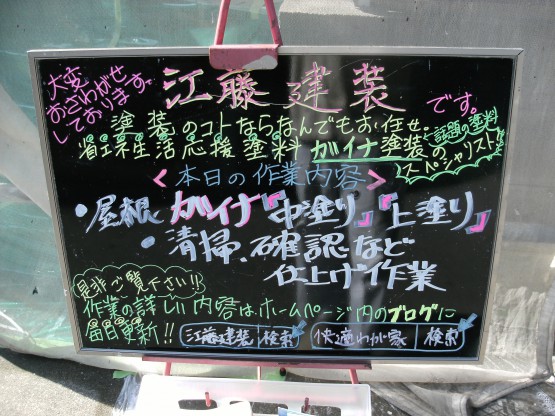 大変
おさわがせ
しております。
江藤建装
です。
塗装のコトならなんでもお任せ!
省エネ生活応援塗料 ガイナ塗装の
話題の塗料
スペシャリスト
<本日の作業内容>
・屋根 ガイナ『中塗り』『上塗り』
・清掃、確認など
仕上げ作業
是非ご覧下さい!!
作業の詳しい内容はホームページ内のブログに
毎日更新!!
江藤建装 検索 快適わが家 検索